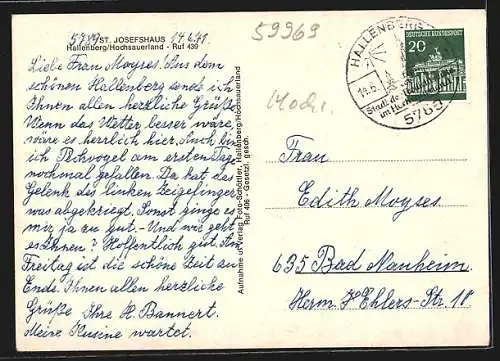 5789 ST. JOSEFSHAUS 14.6.71.
Hallenberg/Hochsauerland - Ruf 439
Liebe Frau Moyses. Aus dem
schönen Hallenberg sende ich
Ihnen allen herzliche Grüße.
Wenn das Wetter besser wäre,
wäre es herrlich hier. Auch bin
ich Pechvogel am ersten Tage
nochmal gefallen. Da hat das
Gelenk des linken Zeigefingers
was abgekriegt. Sonst ginge es
mir ja zu gut. Und wie geht
es Ihnen? Hoffentlich gut. Am
Freitag ist die schöne Zeit am
Ende. Ihnen allen herzliche
Grüße Ihre H. Bannert.
Meine Kusine wartet.
Aufnahme u. Verlag Foto-Schöttler, Hallenberg/Hochsauerland
Ruf 406 - Gesetzl. gesch.
59969
HALLENBERG
14.6.
Stadt
im
5789
DEUTSCHE BUNDESPOST
20
Frau
Edith Moyses
635 Bad Nauheim
Herm. Ehlers-Str. 18